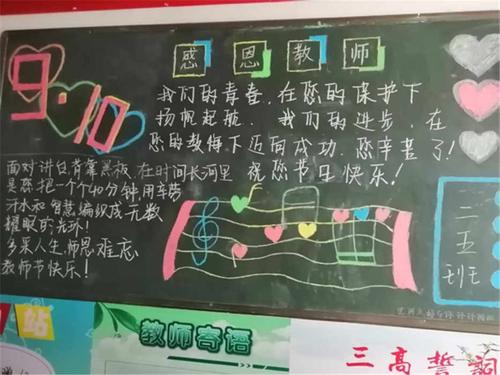 9·10
感恩教师
我们的青春,在您的保护下
扬帆起航.我们的进步,在
您的教悔下迈向成功.您辛苦了!
祝您节日快乐!
面对讲台,背靠黑板,在时间长河里
是您把一个个40分钟,用辛劳
汗水和智慧编织成无数
耀眼的光环!
多采人生,师恩难忘
教师节快乐!
二
五
班
站
教师寄语
三高誓词